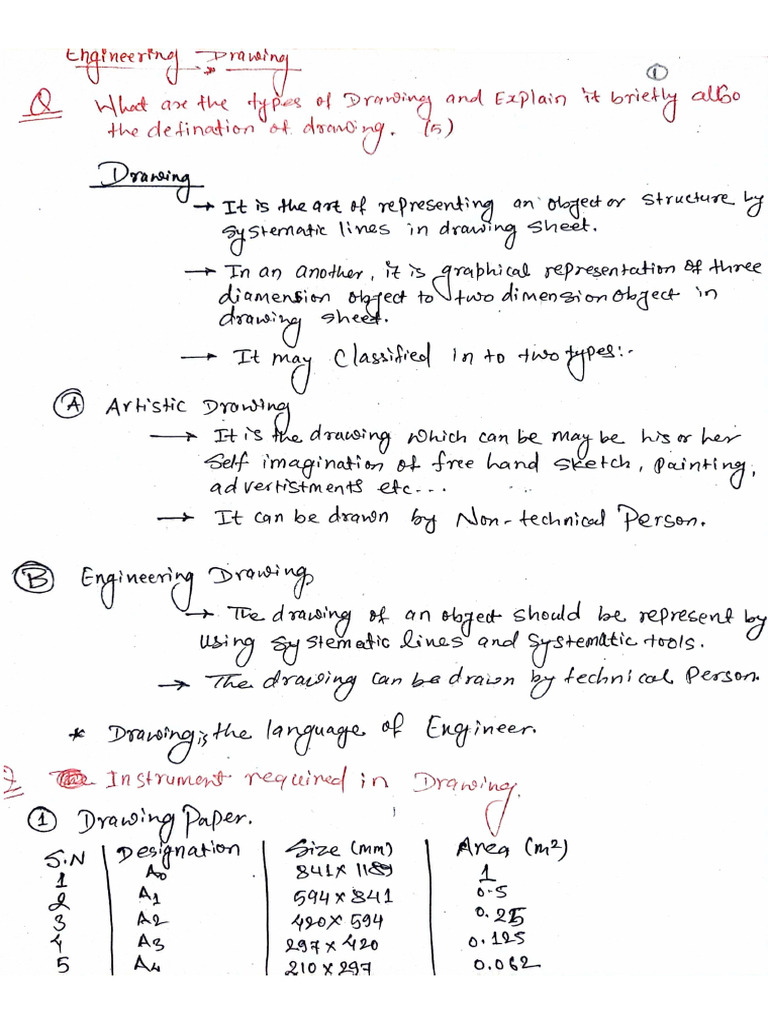 Engineering Drawing
①
Q What are the types of Drawing and Explain it briefly also
the defination of drawing. (5)
Drawing
→ It is the art of representing an object or structure by
systematic lines in drawing sheet.
→ In an another, it is graphical representation of three
diamension object to two dimension object in
drawing sheet.
→ It may Classified in to two types:-
Ⓐ Artistic Drawing
→ It is the drawing which can be may be his or her
Self imagination of free hand sketch, painting,
advertistments etc...
→ It can be drawn by Non-technical Person.
Ⓑ Engineering Drawing
→ The drawing of an object should be represent by
using systematic lines and systematic tools.
→ The drawing can be drawn by technical Person.
* Drawing is the language of Engineer.
Instrument required in Drawing.
① Drawing Paper.
S.N | Designation | Size (mm) | Area (m2)
1 | A0 | 841 x 1189 | 1
2 | A1 | 594 x 841 | 0.5
3 | A2 | 420 x 594 | 0.25
4 | A3 | 297 x 420 | 0.125
5 | A4 | 210 x 297 | 0.062